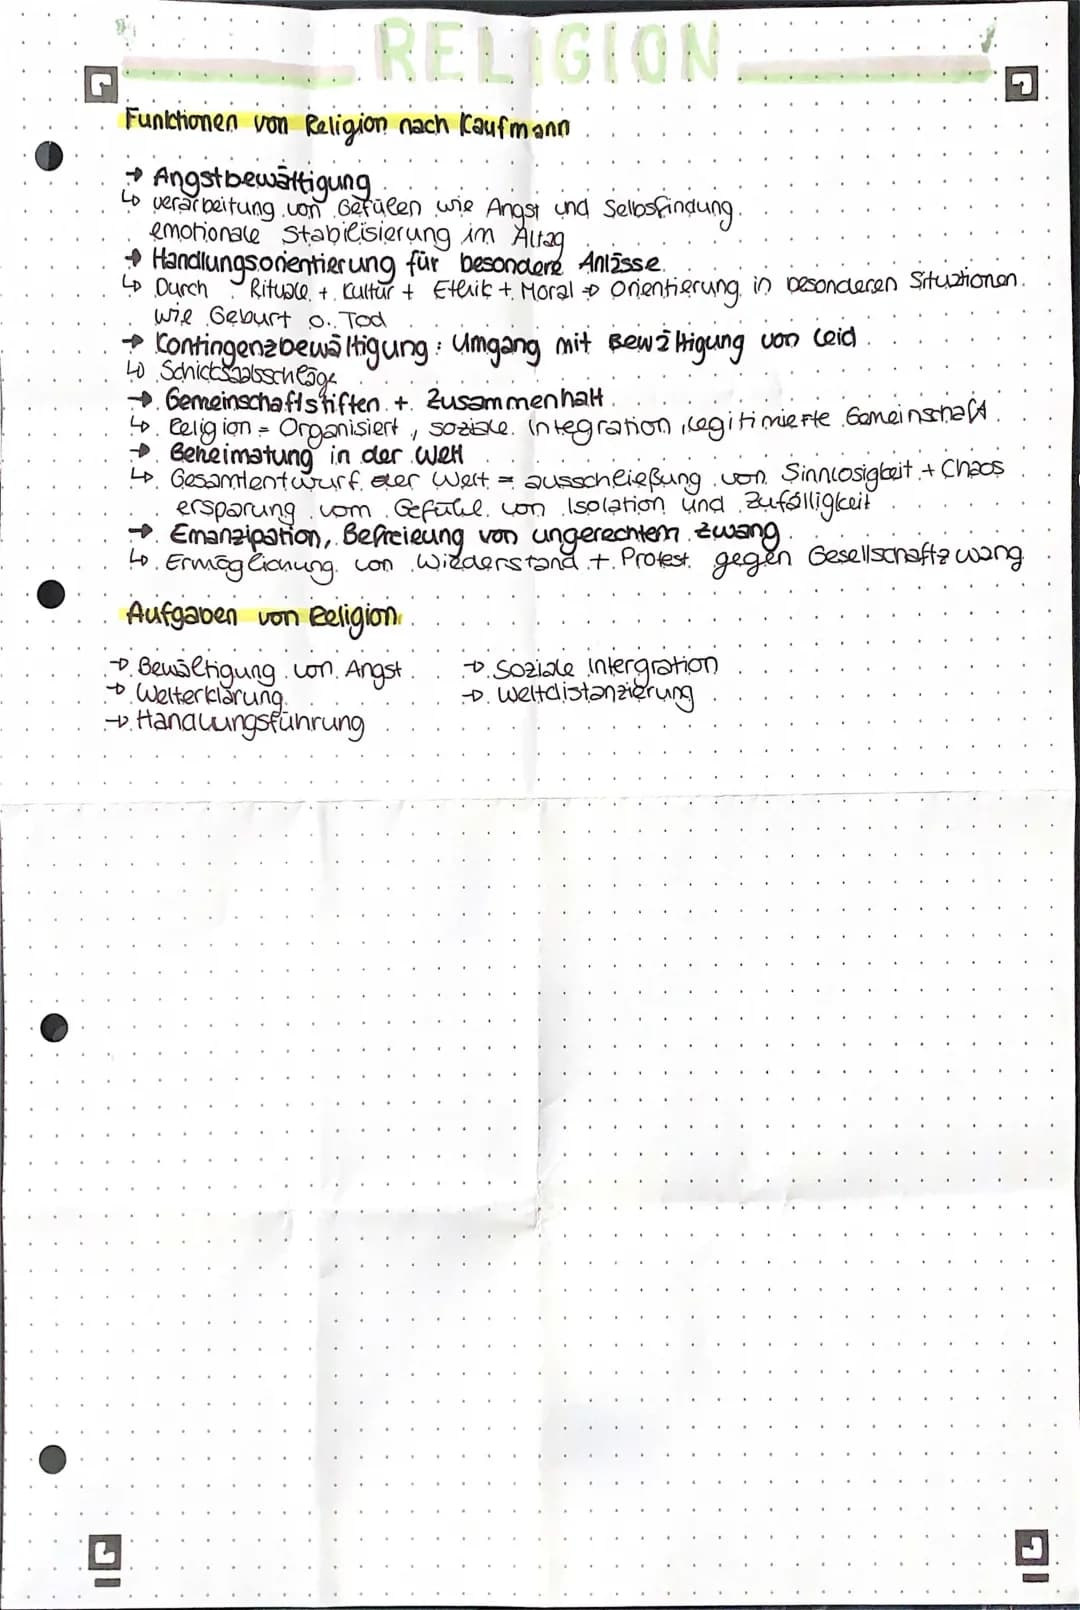 RELIGION
Funktionen von Religion nach Kaufmann
→ Angstbewältigung
↳ verarbeitung von Gefülen wie Angst und Selbsfindung.
emotionale Stabilisierung im Altag
→ Handlungsorientierung für besondere Anlässe
↳ Durch Rituale + Kultur + Ethik + Moral → Orientierung in besonderen Situationen
wie Geburt o. Tod
→ Kontingenzbewältigung: Umgang mit Bewältigung von Leid
↳ Schicksaalsschläge
→ Gemeinschaftstiften + Zusammenhalt
↳ Religion = Organisiert, soziale Integration, legitimierte Gemeinschaft
→ Beheimatung in der Welt
↳ Gesamtentwurf der Welt = ausschließung von Sinnlosigkeit + Chaos
ersparung vom Gefühl von Isolation und Zufälligkeit
→ Emanzipation, Befreieung von ungerechtem Zwang
↳ Ermöglichung von Wiederstand + Protest gegen Gesellschaftzwang
Aufgaben von Religion
→ Bewältigung von Angst
→ Welterklärung
→ Handlungsführung
→ Soziale Intergration
→ Weltdistanzierung